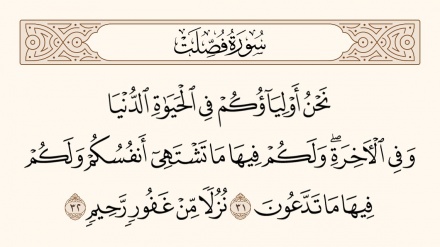 سُورَةُ فُصِّلَتْ
نَحْنُ أَوْلِيَآؤُكُمْ فِي الْحَيَوٰةِ الدُّنْيَا
وَفِي الْأٓخِرَةِۖ وَلَكُمْ فِيهَا مَا تَشْتَهِيٓ أَنفُسُكُمْ وَلَكُمْ
فِيهَا مَا تَدَّعُونَ ٣١ نُزُلًا مِّنْ غَفُورٍ رَّحِيمٍ ٣٢